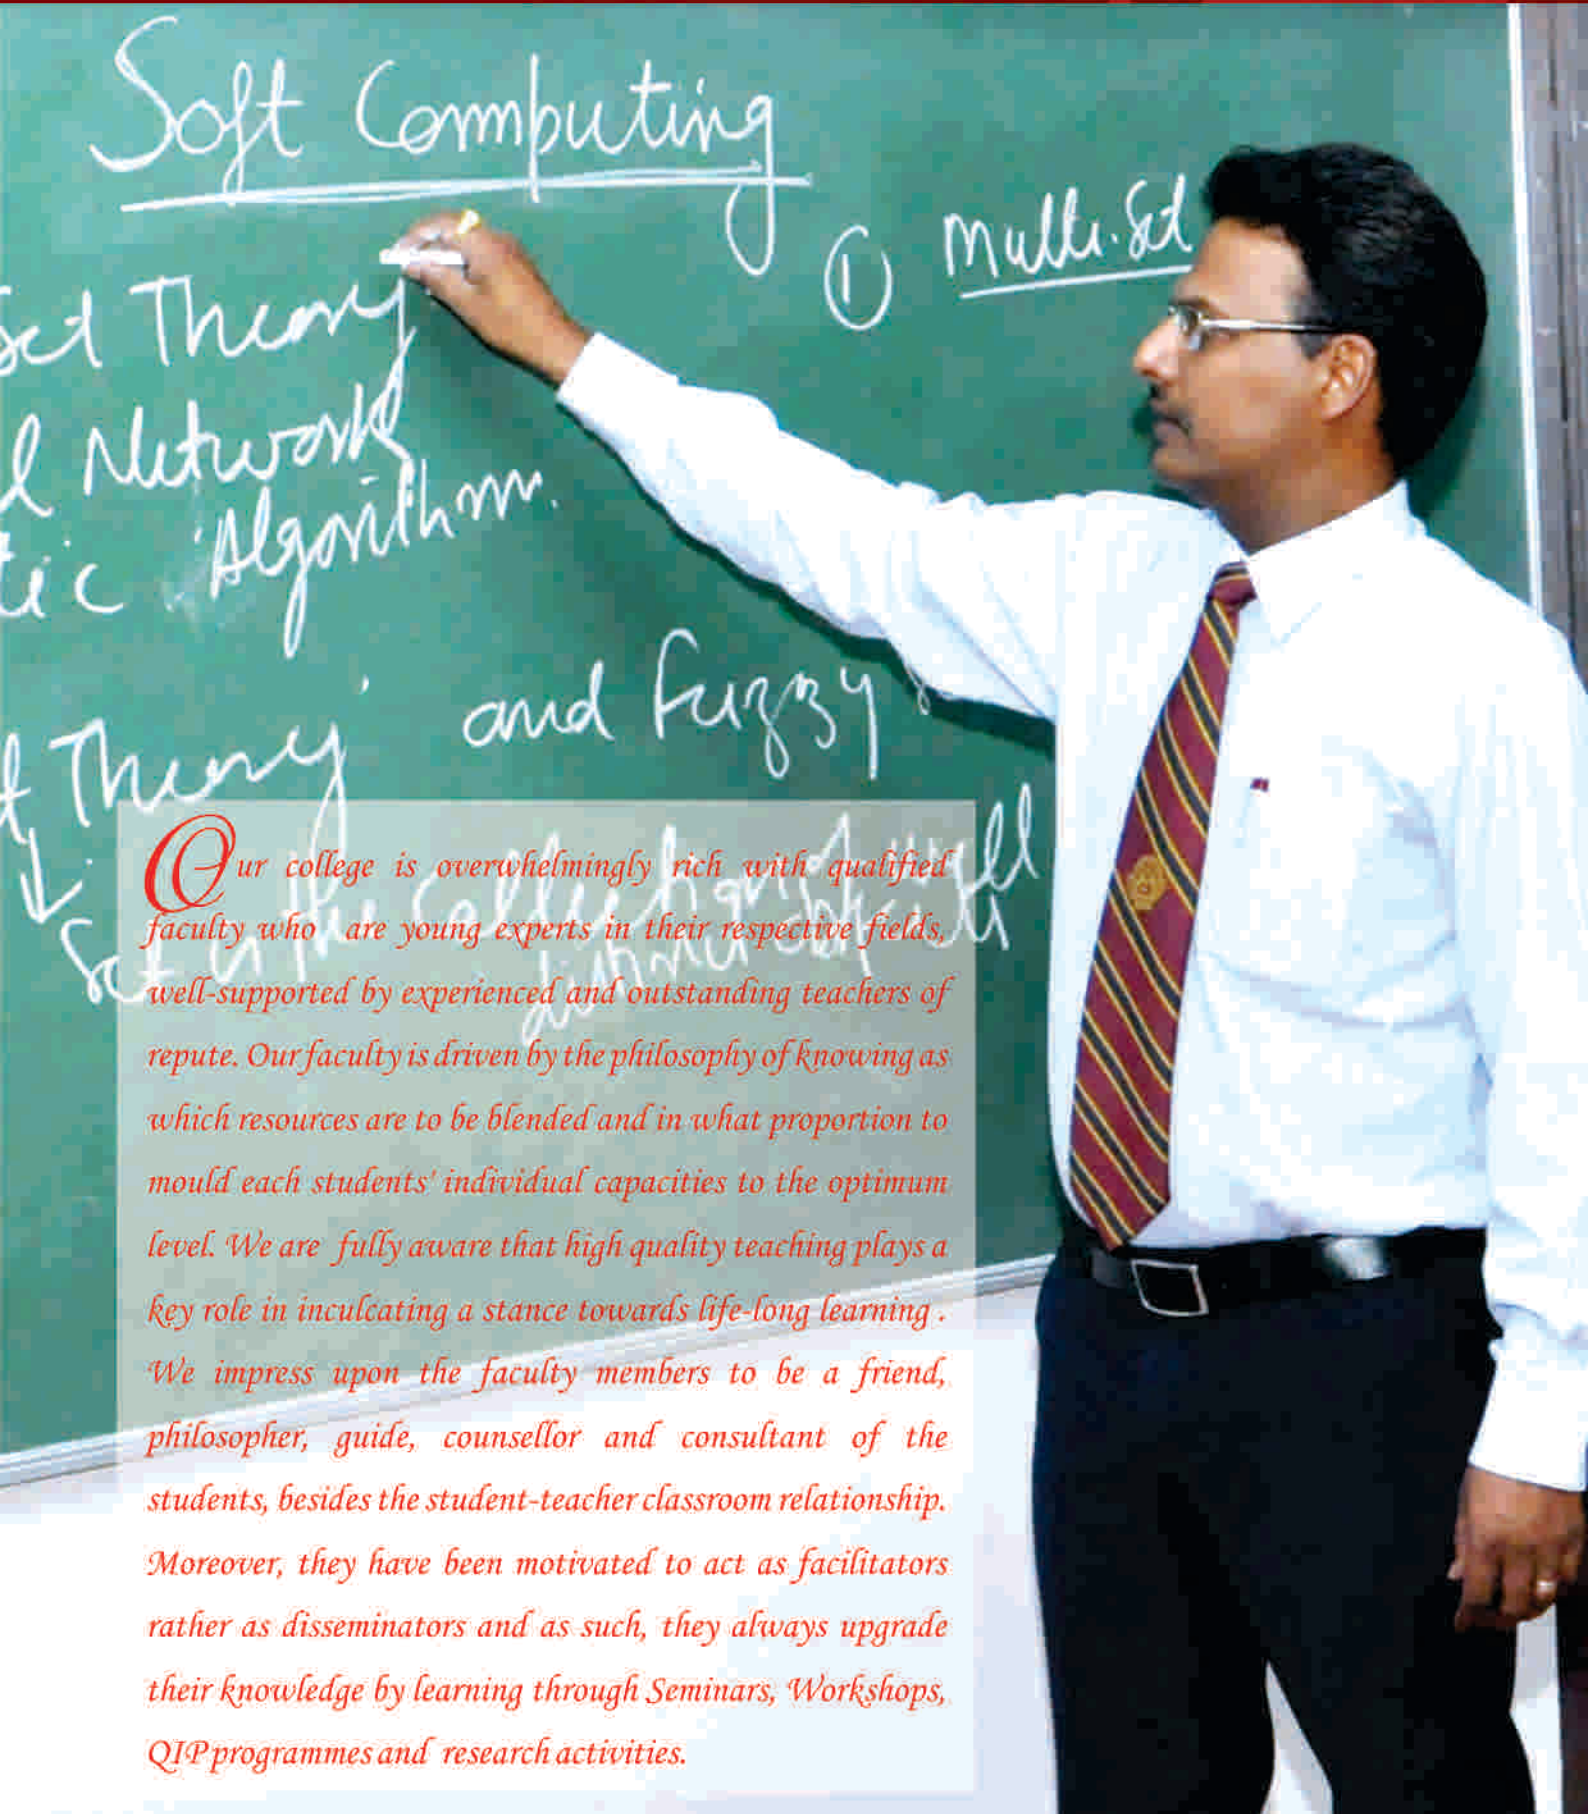 Soft Computing
① Multi-Set
Set Theory
Network
Algorithm.
Theory and Fuzzy
Set is the Collection of well
Our college is overwhelmingly rich with qualified
faculty who are young experts in their respective fields,
well-supported by experienced and outstanding teachers of
repute. Our faculty is driven by the philosophy of knowing as
which resources are to be blended and in what proportion to
mould each students' individual capacities to the optimum
level. We are fully aware that high quality teaching plays a
key role in inculcating a stance towards life-long learning .
We impress upon the faculty members to be a friend,
philosopher, guide, counsellor and consultant of the
students, besides the student-teacher classroom relationship.
Moreover, they have been motivated to act as facilitators
rather as disseminators and as such, they always upgrade
their knowledge by learning through Seminars, Workshops,
QIP programmes and research activities.